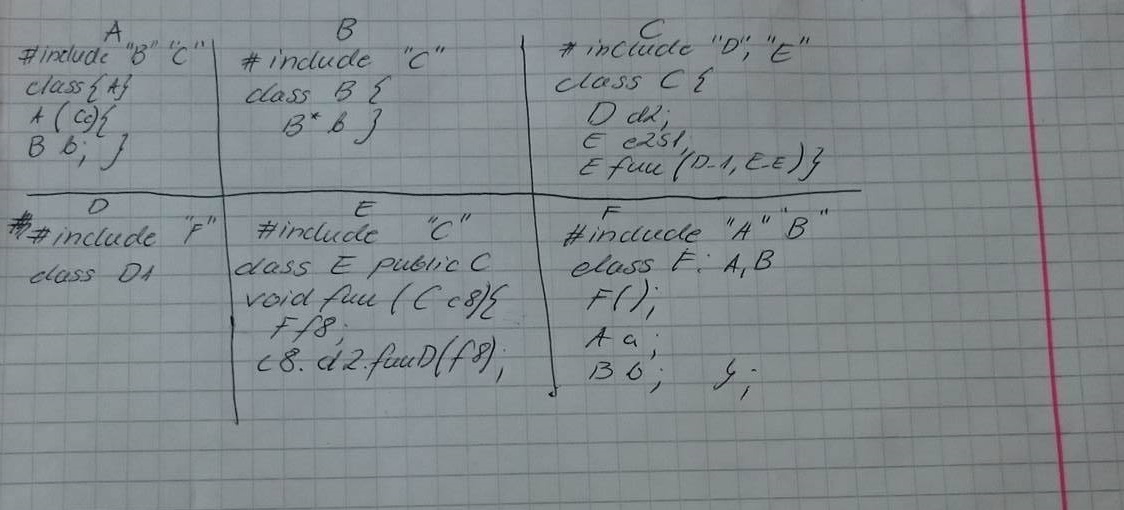 A
#include "B" "C"
class{A}
A (Cc){
B b; }
B
#include "C"
class B {
B* b }
C
#include "D", "E"
class C {
D d2;
E e2s1,
E fuu (D-1, E-E)}
D
#include "F"
class D1
E
#include "C"
class E public C
void fuu ( C c8){
F f8;
c8. d2.fuuD(f8);
F
#include "A" "B"
class F: A, B
F();
A a;
B b; };